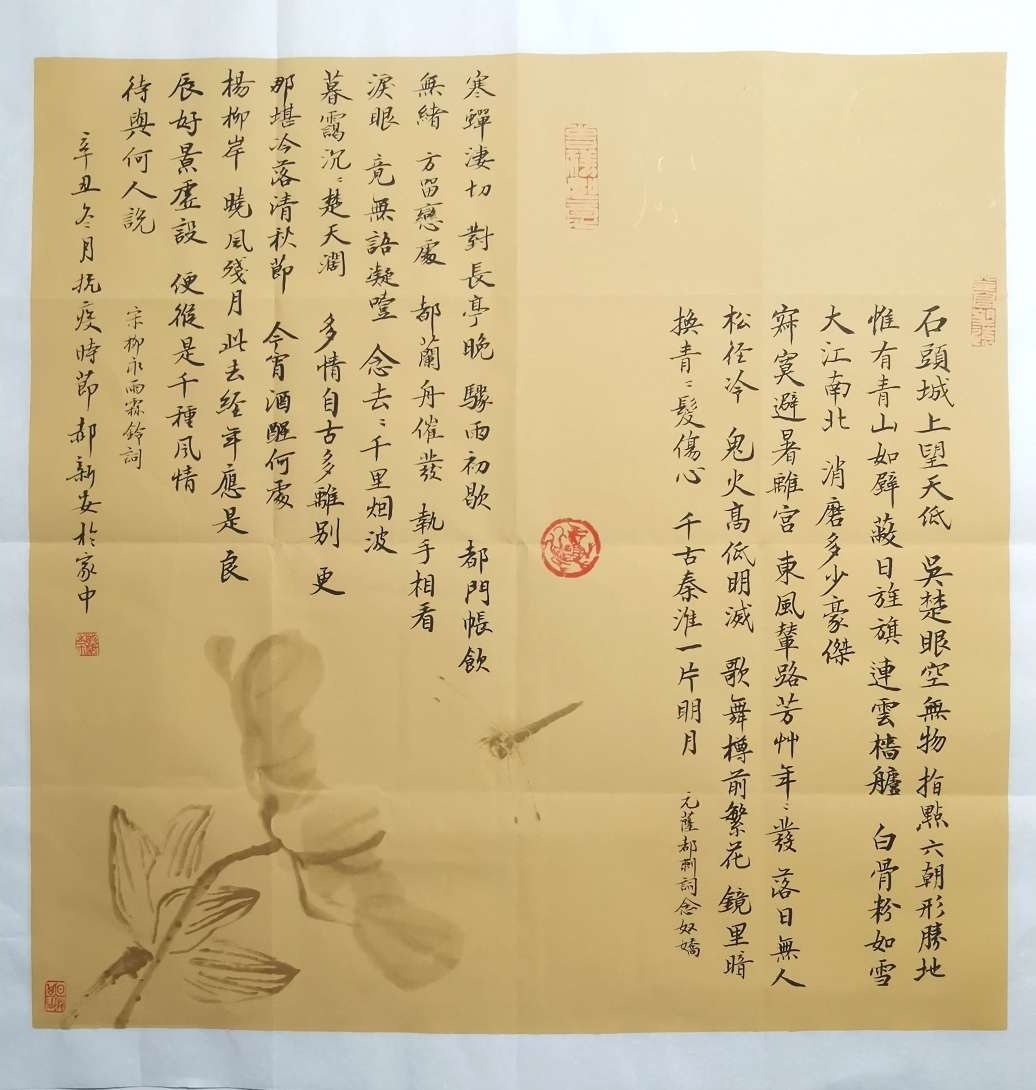 石頭城上望天低　吳楚眼空無物　指點六朝形勝地
惟有青山如壁　蔽日旌旗　連雲檣艫　白骨粉如雪
大江南北　消磨多少豪傑
寂寞避暑離宮　東風輦路芳艸年〻發　落日無人
松徑冷　鬼火高低明滅　歌舞樽前繁花　鏡里暗
換青〻髮傷心　千古秦淮一片明月
元薩都剌詞念奴嬌
寒蟬淒切　對長亭晚　驟雨初歇　都門帳飲
無緒　方留戀處　都蘭舟催發　執手相看
淚眼　竟無語凝噎　念去〻千里烟波
暮靄沉〻楚天濶　多情自古多離別　更
那堪冷落清秋節　今宵酒醒何處
楊柳岸　曉風殘月　此去經年應是良
辰好景虛設　便縱是千種風情
待與何人說
宋柳永雨霖鈴詞
辛丑冬月抗疫時節郝新安於家中